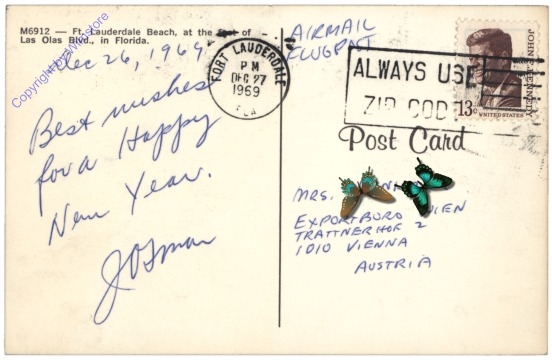 M6912 — Ft. Lauderdale Beach, at the foot of
Las Olas Blvd., in Florida.
Copyright by AKstore
Dec 26, 1969
Best wishes
for a Happy
New Year.
AIRMAIL
FLUGPOST
FORT LAUDERDALE
PM
DEC 27
1969
FLA
ALWAYS USE
ZIP CODE
JOHN F. KENNEDY
13c
UNITED STATES
Post Card
MRS.
EXPORTBURO WIEN
TRATTNERHOF 2
1010 VIENNA
AUSTRIA